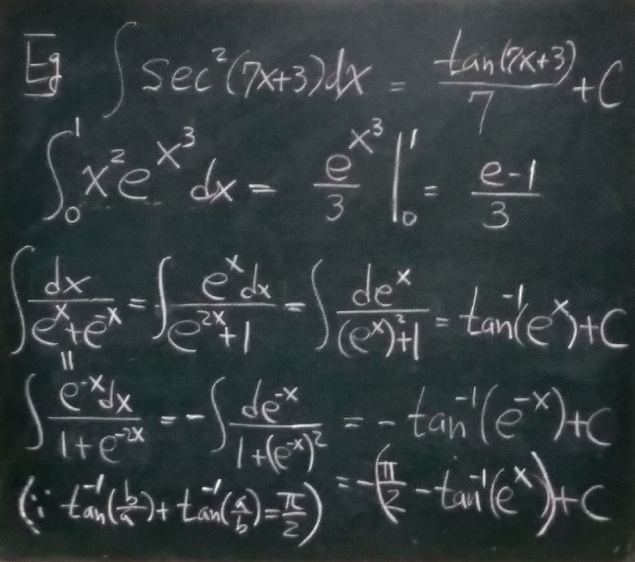 Eg ∫ sec²(7x+3)dx = tan(7x+3)/7 + C
∫₀¹ x² e^{x³} dx = e^{x³}/3 |₀¹ = (e-1)/3
∫ dx/(e^x+e^{-x}) = ∫ e^x dx/(e^{2x}+1) = ∫ de^x/((e^x)²+1) = tan⁻¹(e^x)+C
॥
∫ e^{-x}dx/(1+e^{-2x}) = -∫ de^{-x}/(1+(e^{-x})²) = -tan⁻¹(e^{-x})+C
(∵ tan⁻¹(b/a)+tan⁻¹(a/b)=π/2) = -(π/2 - tan⁻¹(e^x))+C